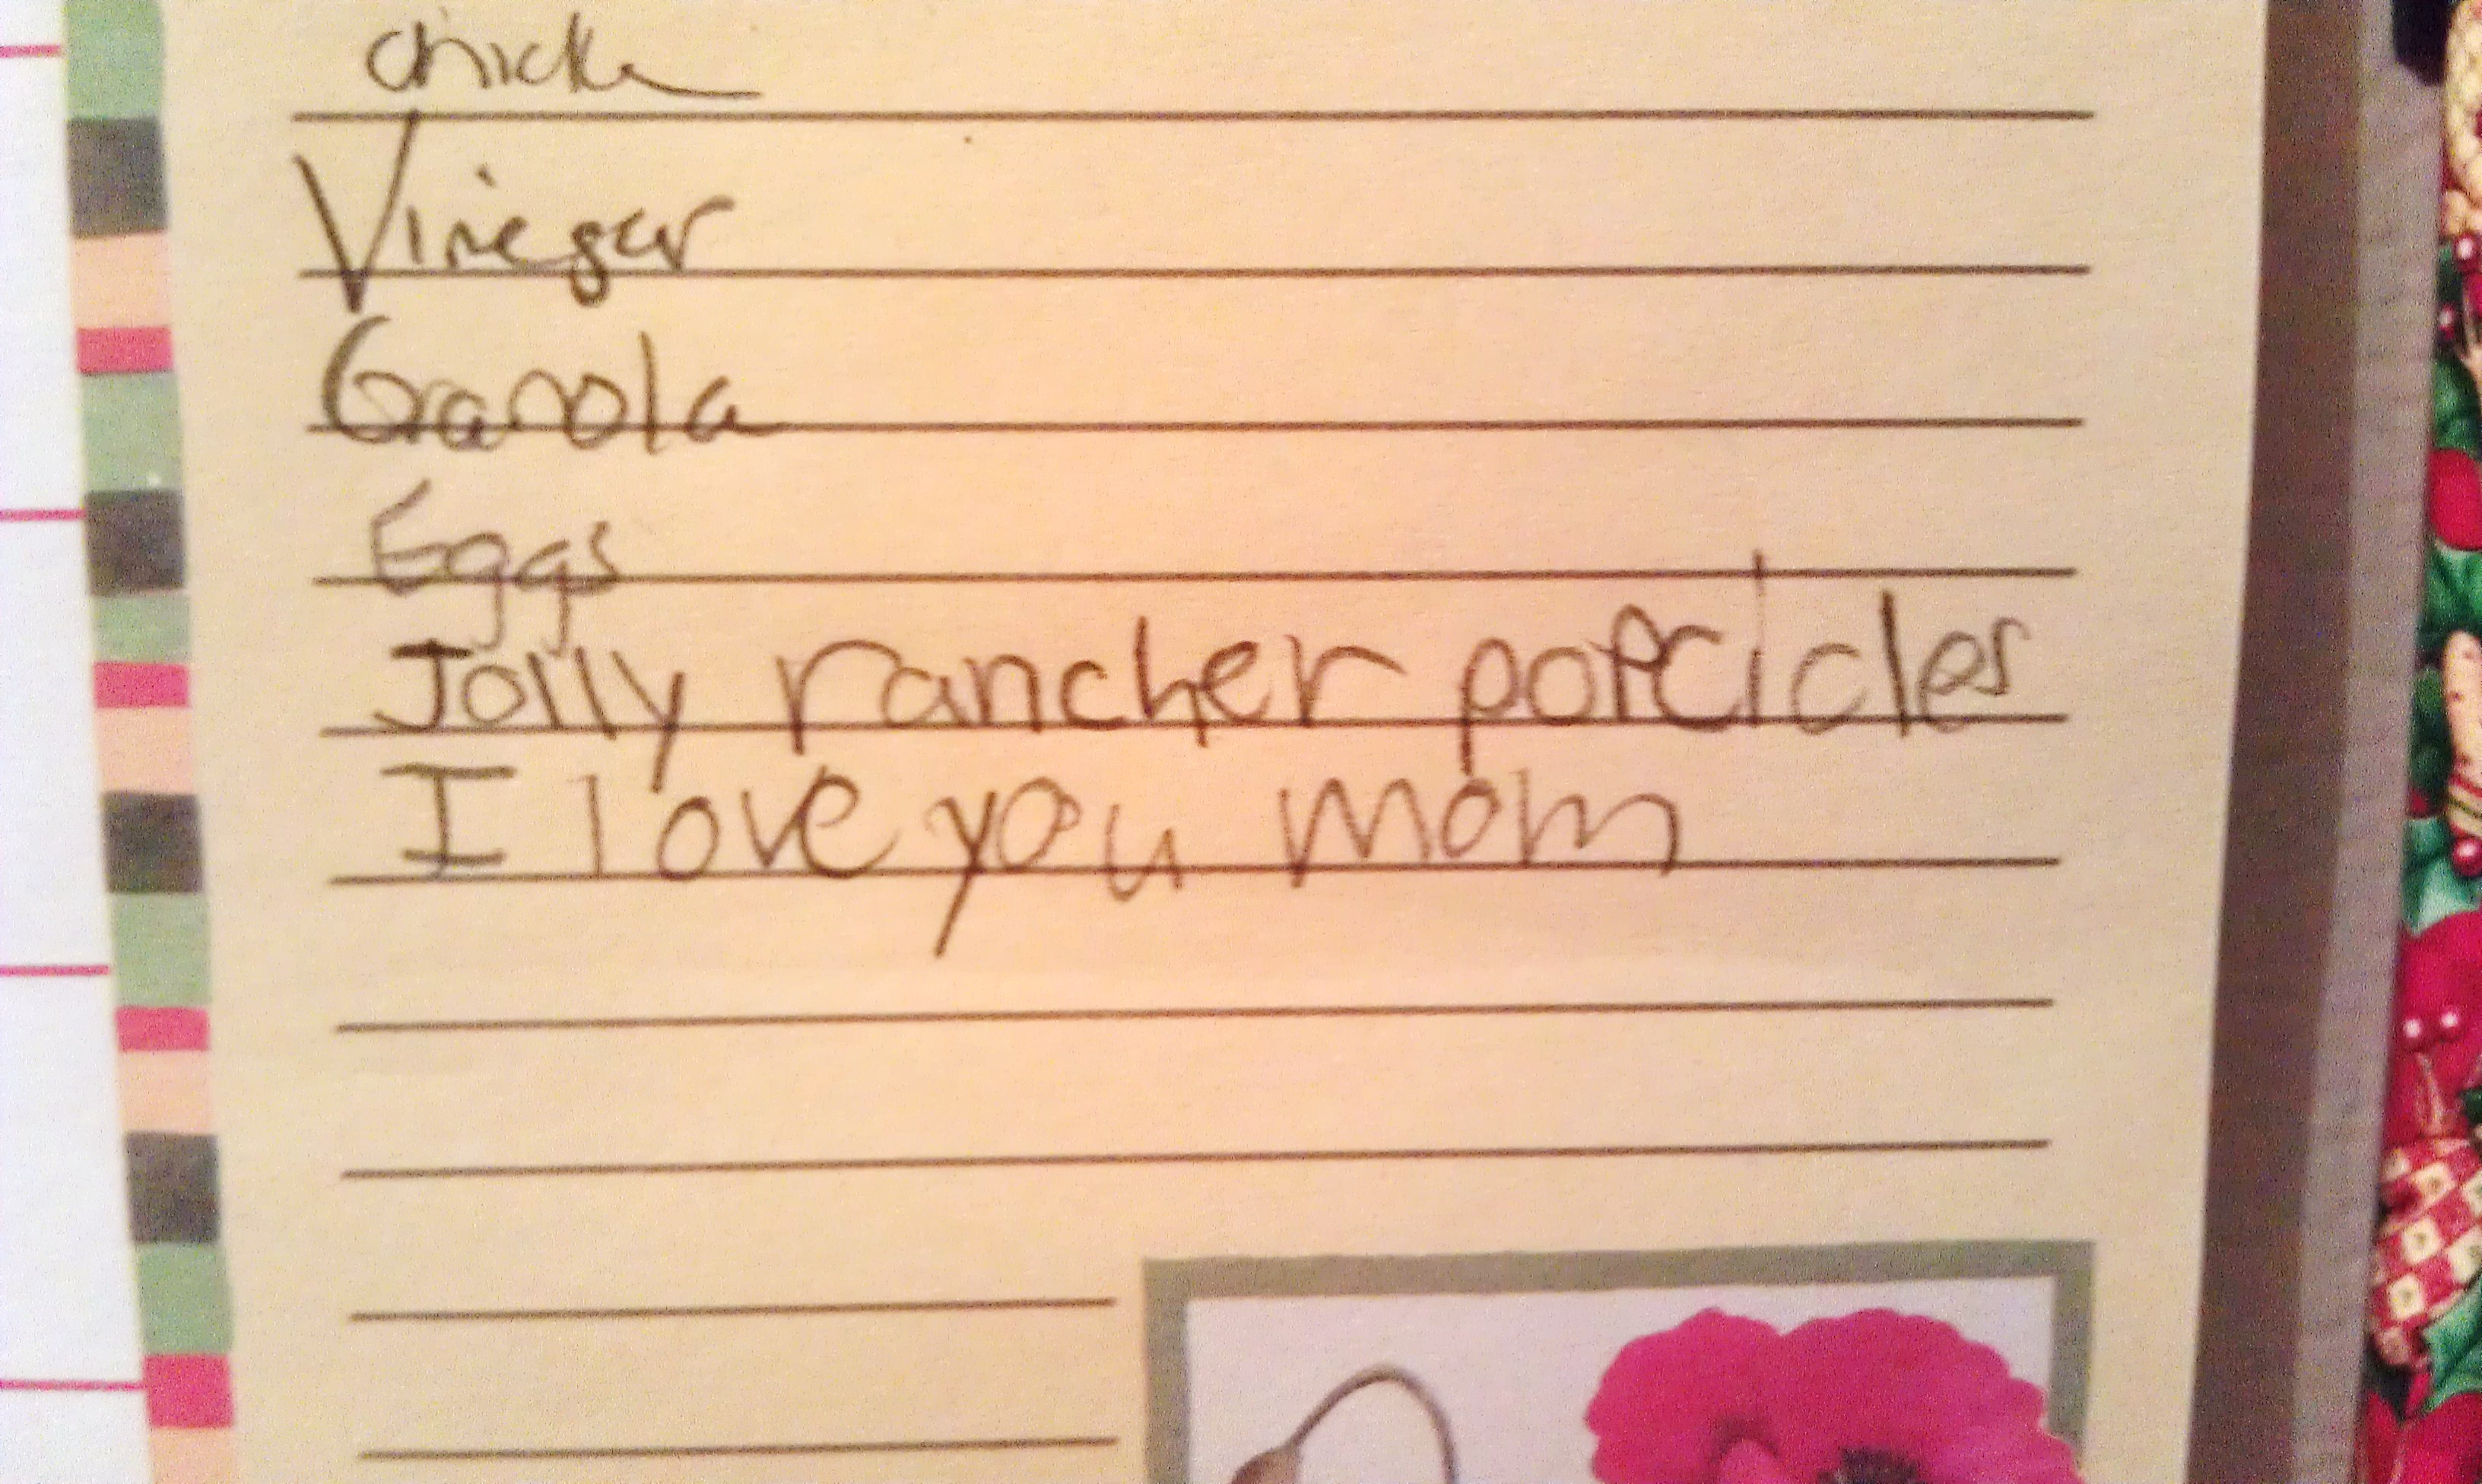 Chicken
Vinegar
Granola
Eggs
Jolly rancher popcicles
I love you mom